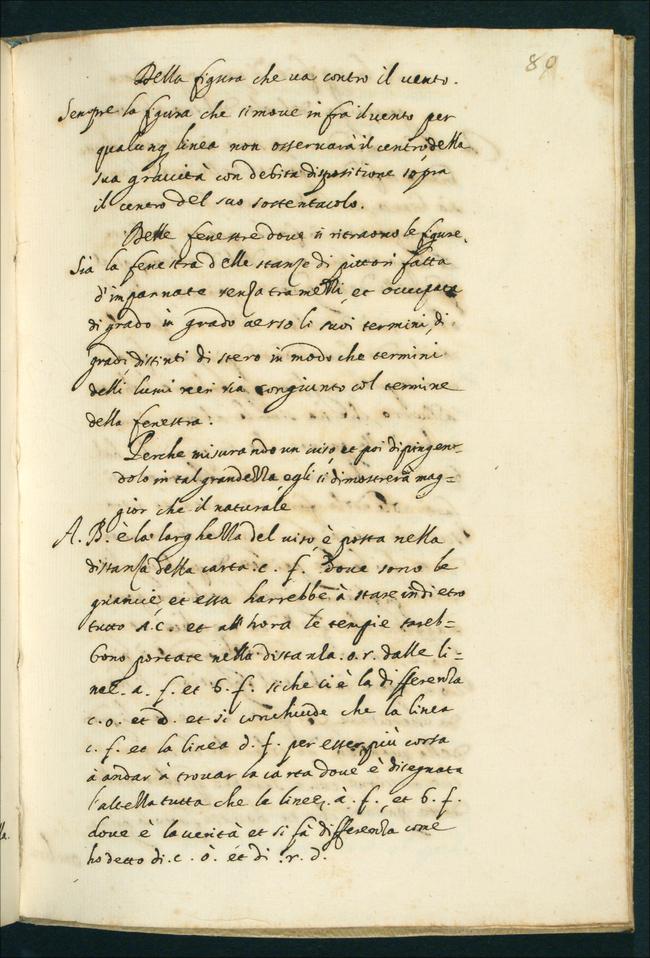 89
Della figura che ua contro il uento.
Sempre la figura che si moue in fra il uento per
qualunq linea non osseruarà il centro della
sua grauità con debita dispositione sopra
il centro del suo sostentacolo.
Delle fenestre doue si ritraono le figure.
Sia la fenestra delle stanze di pittori fatta
d'impannate senza tramezzi, et occupata
di grado in grado uerso li suoi termini, di
gradi distinti di nero in modo che termini
delli lumi non sia congiunto col termine
della fenestra.
Perche misurando un uiso, et poi dipingen=
dolo in tal grandezza, egli si dimostrerà mag=
gior che il naturale
A. B. è la larghezza del uiso, è posta nella
distanza della carta .c. f. doue sono le
guancie, et essa harrebbe à stare indietro
tutto A.C. et all'hora le tempie sareb=
bono portate nella distanza .o. r. dalle li=
nee .a. f. et b. f. siche ci è la differenza
c. o. et d. et si conchiude che la linea
c. f. et la linea d. f. per esser più corta
à andar à trouar la carta doue è disegnata
l'altezza tutta che le linee, à. f. et b. f.
doue è la uerità et si fà differenza come
ho detto di .c. ò. et di .r. d.